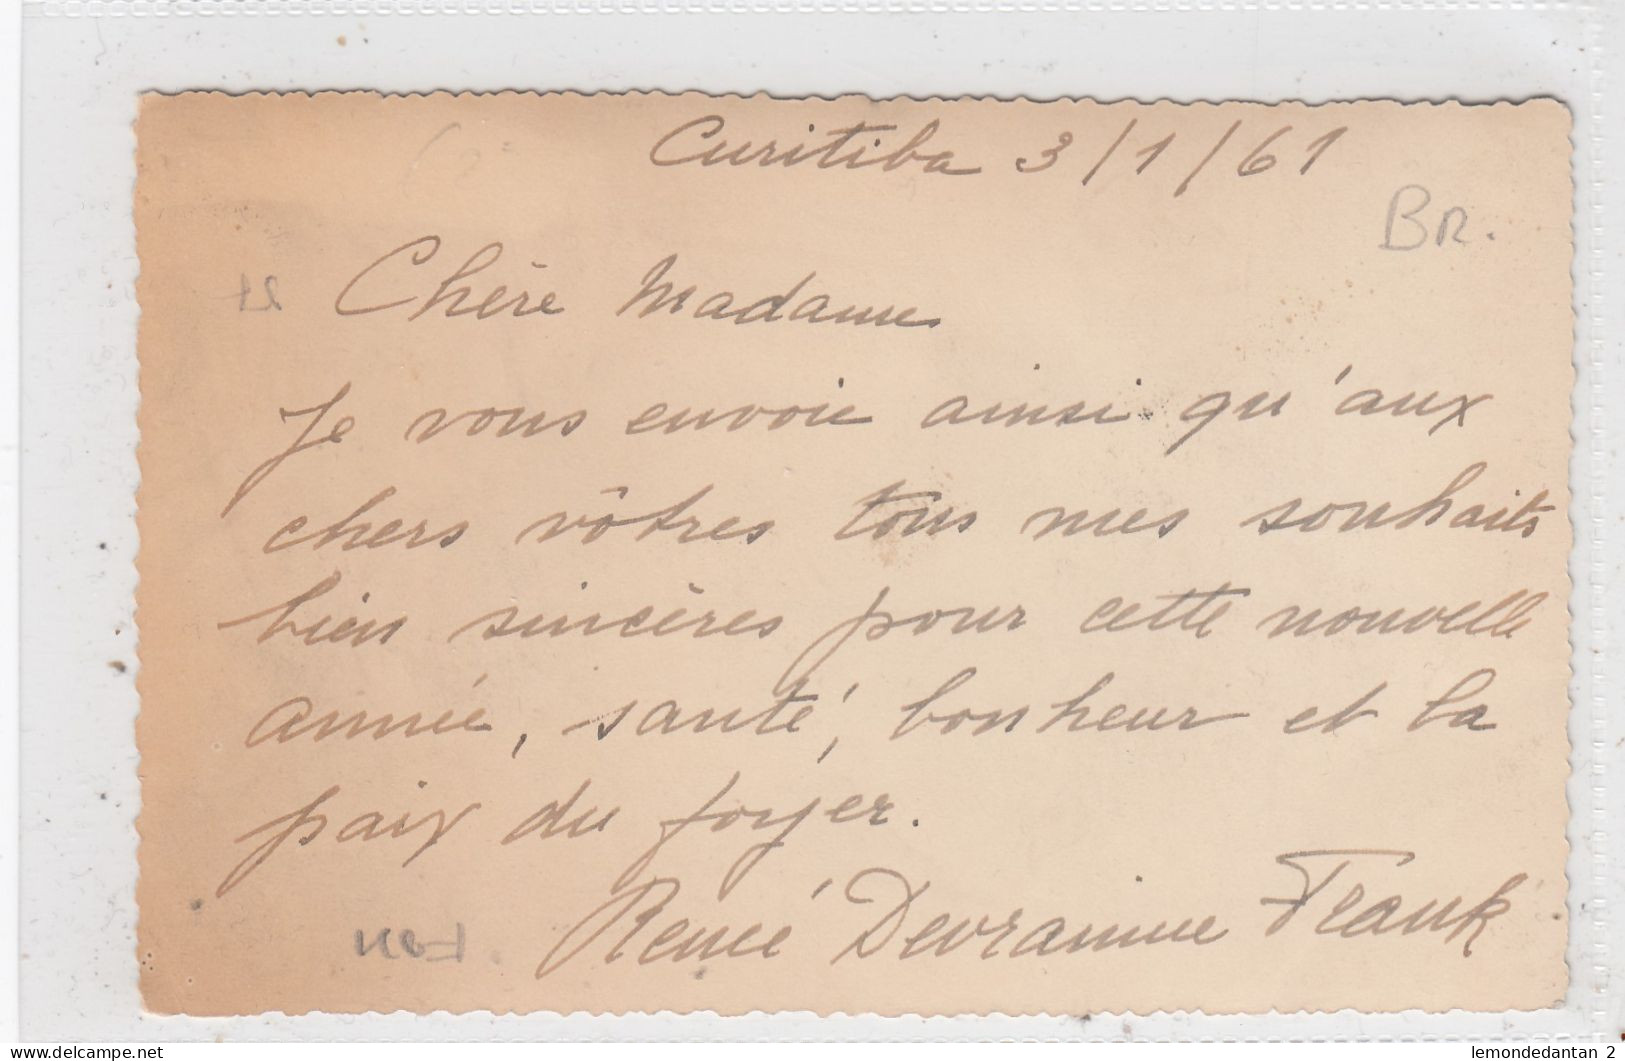 Curitiba 3/1/61
BR.
Chère Madame
Je vous envoie ainsi qu'aux
chers vôtres tous mes souhaits
bien sincères pour cette nouvelle
année, santé, bonheur et la
paix du foyer.
René Devrainne Frank
delcampe.net
lemondedantan 2